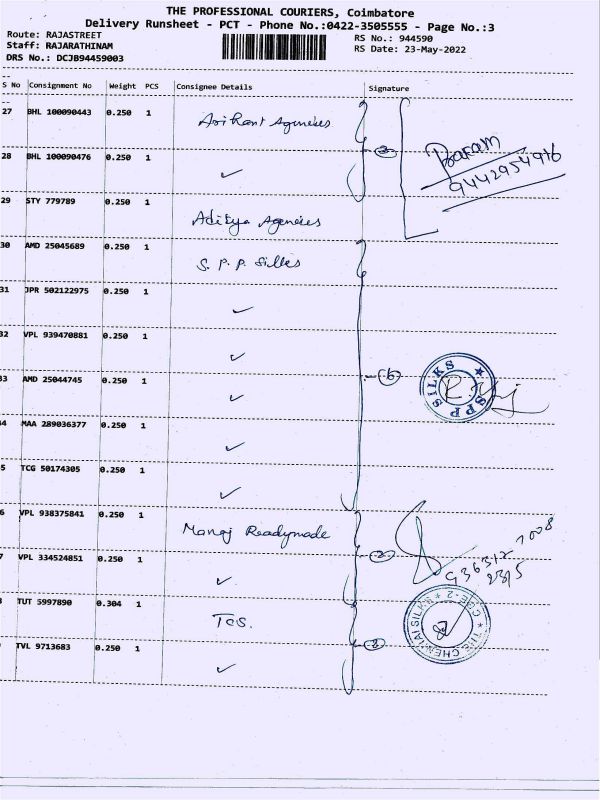 THE PROFESSIONAL COURIERS, Coimbatore
Delivery Runsheet - PCT - Phone No.:0422-3505555 - Page No.:3
Route: RAJASTREET
RS No.: 944590
Staff: RAJARATHINAM
RS Date: 23-May-2022
DRS No.: DCJB94459003
S No Consignment No Weight PCS Consignee Details Signature
27 BHL 100090443 0.250 1 Arihant Agencies
28 BHL 100090476 0.250 1 ✓
3
9442954916
29 STY 779789 0.250 1 Aditya Agencies
30 AMD 25045689 0.250 1 S. P. P. Silks
31 JPR 502122975 0.250 1 ✓
32 VPL 939470881 0.250 1 ✓
33 AMD 25044745 0.250 1 ✓
6
SPP SILKS
4 MAA 289036377 0.250 1 ✓
5 TCG 50174305 0.250 1 ✓
6 VPL 938375841 0.250 1 Manoj Readymade
2
7 VPL 334524851 0.250 1 ✓
23/5
TUT 5997890 0.304 1 TCS.
2
THE CHENNAI SILKS * CBE-2 *
TVL 9713683 0.250 1 ✓